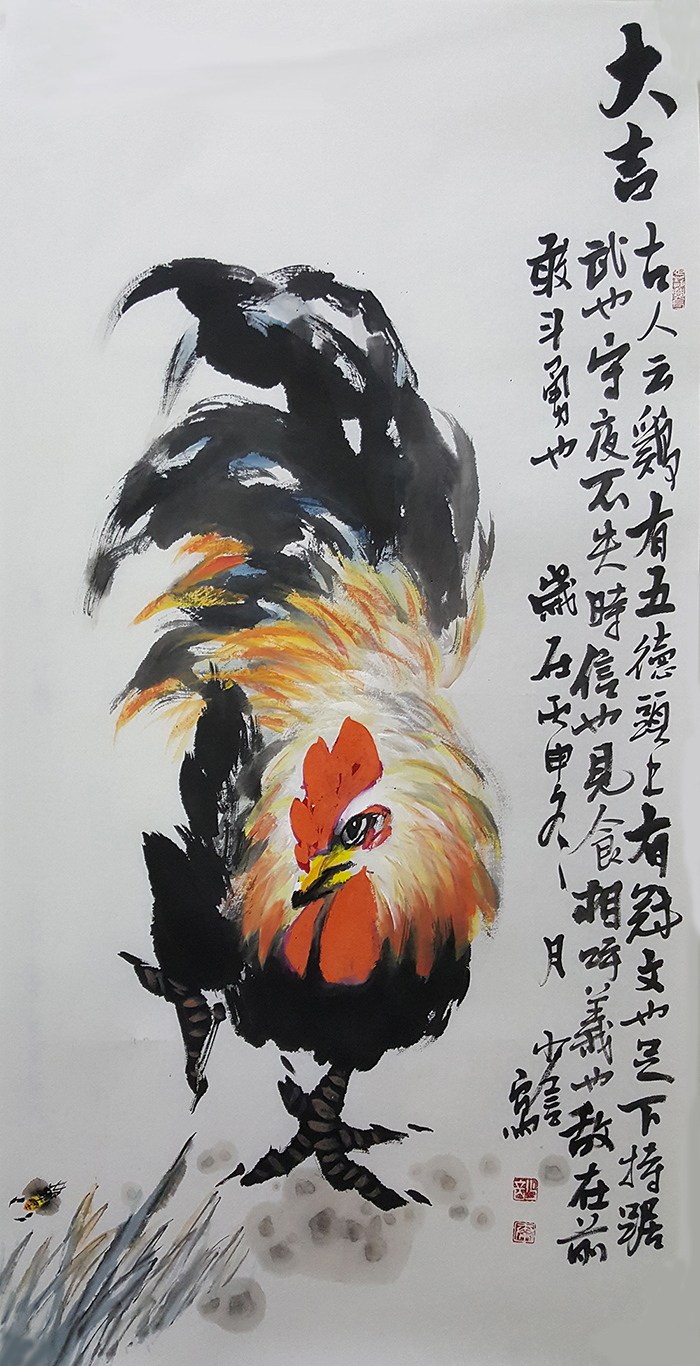 大吉
古人云鷄有五德頭上有冠文也足下持踞
武也守夜不失時信也見食相呼義也敌在前
敢斗勇也
歲在丙申冬月
少言寫